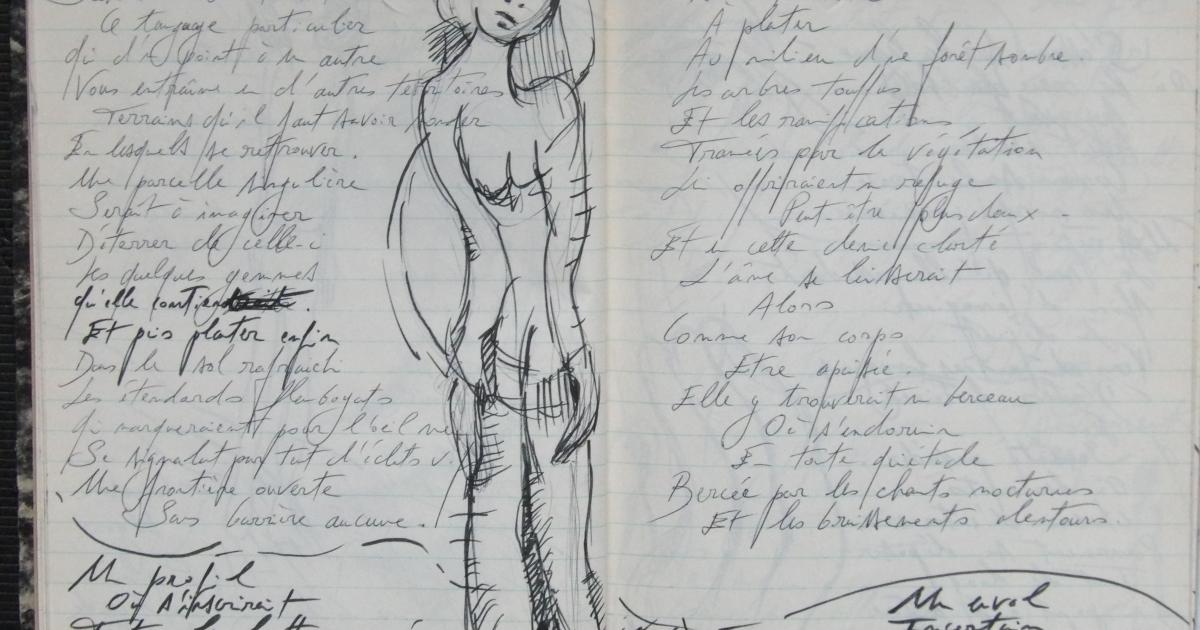 Ce tangage particulier
qui d'un point à un autre
Vous entraîne en d'autres territoires
Terrains qu'il faut savoir sonder
En lesquels se retrouver.
Une parcelle singulière
Serait à imaginer
Déterrer de celle-ci
les quelques gemmes
qu'elle contiendrait.
Et puis planter enfin
Dans le sol rafraîchi
Les étendards flamboyants
qui marqueraient pour l'oeil
Se signalant par tant d'éclats
Une frontière ouverte
Sans barrière aucune.
Un profil
Où s'inscrirait
À planter
Au milieu d'une forêt sombre.
Les arbres touffus
Et les ramifications
Tramées par la végétation
Lui offriraient un refuge
Peut-être plus doux -
Et en cette demie clarté
L'âme se laisserait
Alors
Comme son corps
Etre apaisée.
Elle y trouverait un berceau
Où s'endormir
En toute quiétude
Bercée par les chants nocturnes
Et les bruissements alentours.
Un aval
Incertain